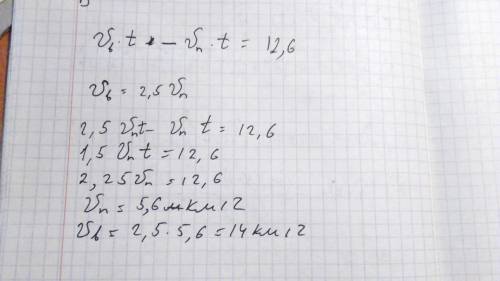 𝒱в · t - 𝒱п · t = 12,6
𝒱в = 2,5 𝒱п
2,5 𝒱пt - 𝒱п t = 12,6
1,5 𝒱п t = 12,6
2,25 𝒱п = 12,6
𝒱п = 5,6 км/г
𝒱в = 2,5 · 5,6 = 14 км/г